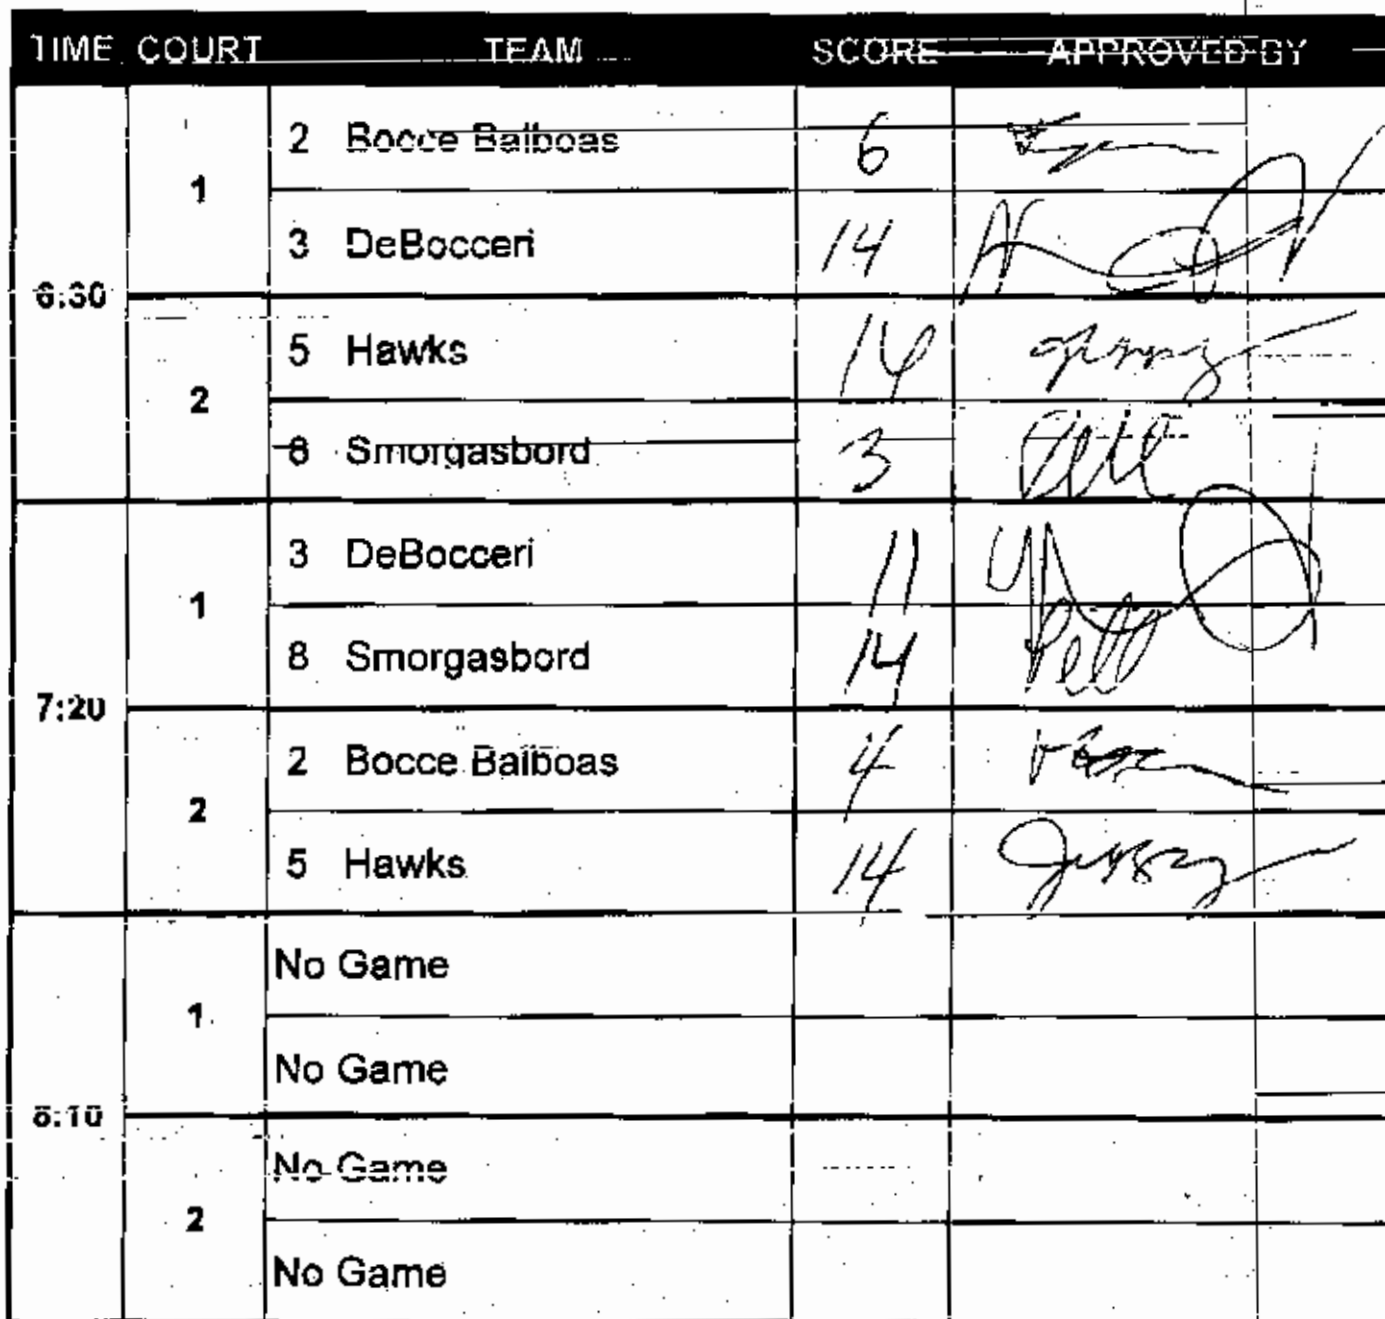 TIME COURT TEAM SCORE APPROVED BY
6:30
1
2 Bocce Balboas 6
3 DeBocceri 14
2
5 Hawks 14
8 Smorgasbord 3
7:20
1
3 DeBocceri 11
8 Smorgasbord 14
2
2 Bocce Balboas 4
5 Hawks 14
8:10
1
No Game
No Game
2
No Game
No Game